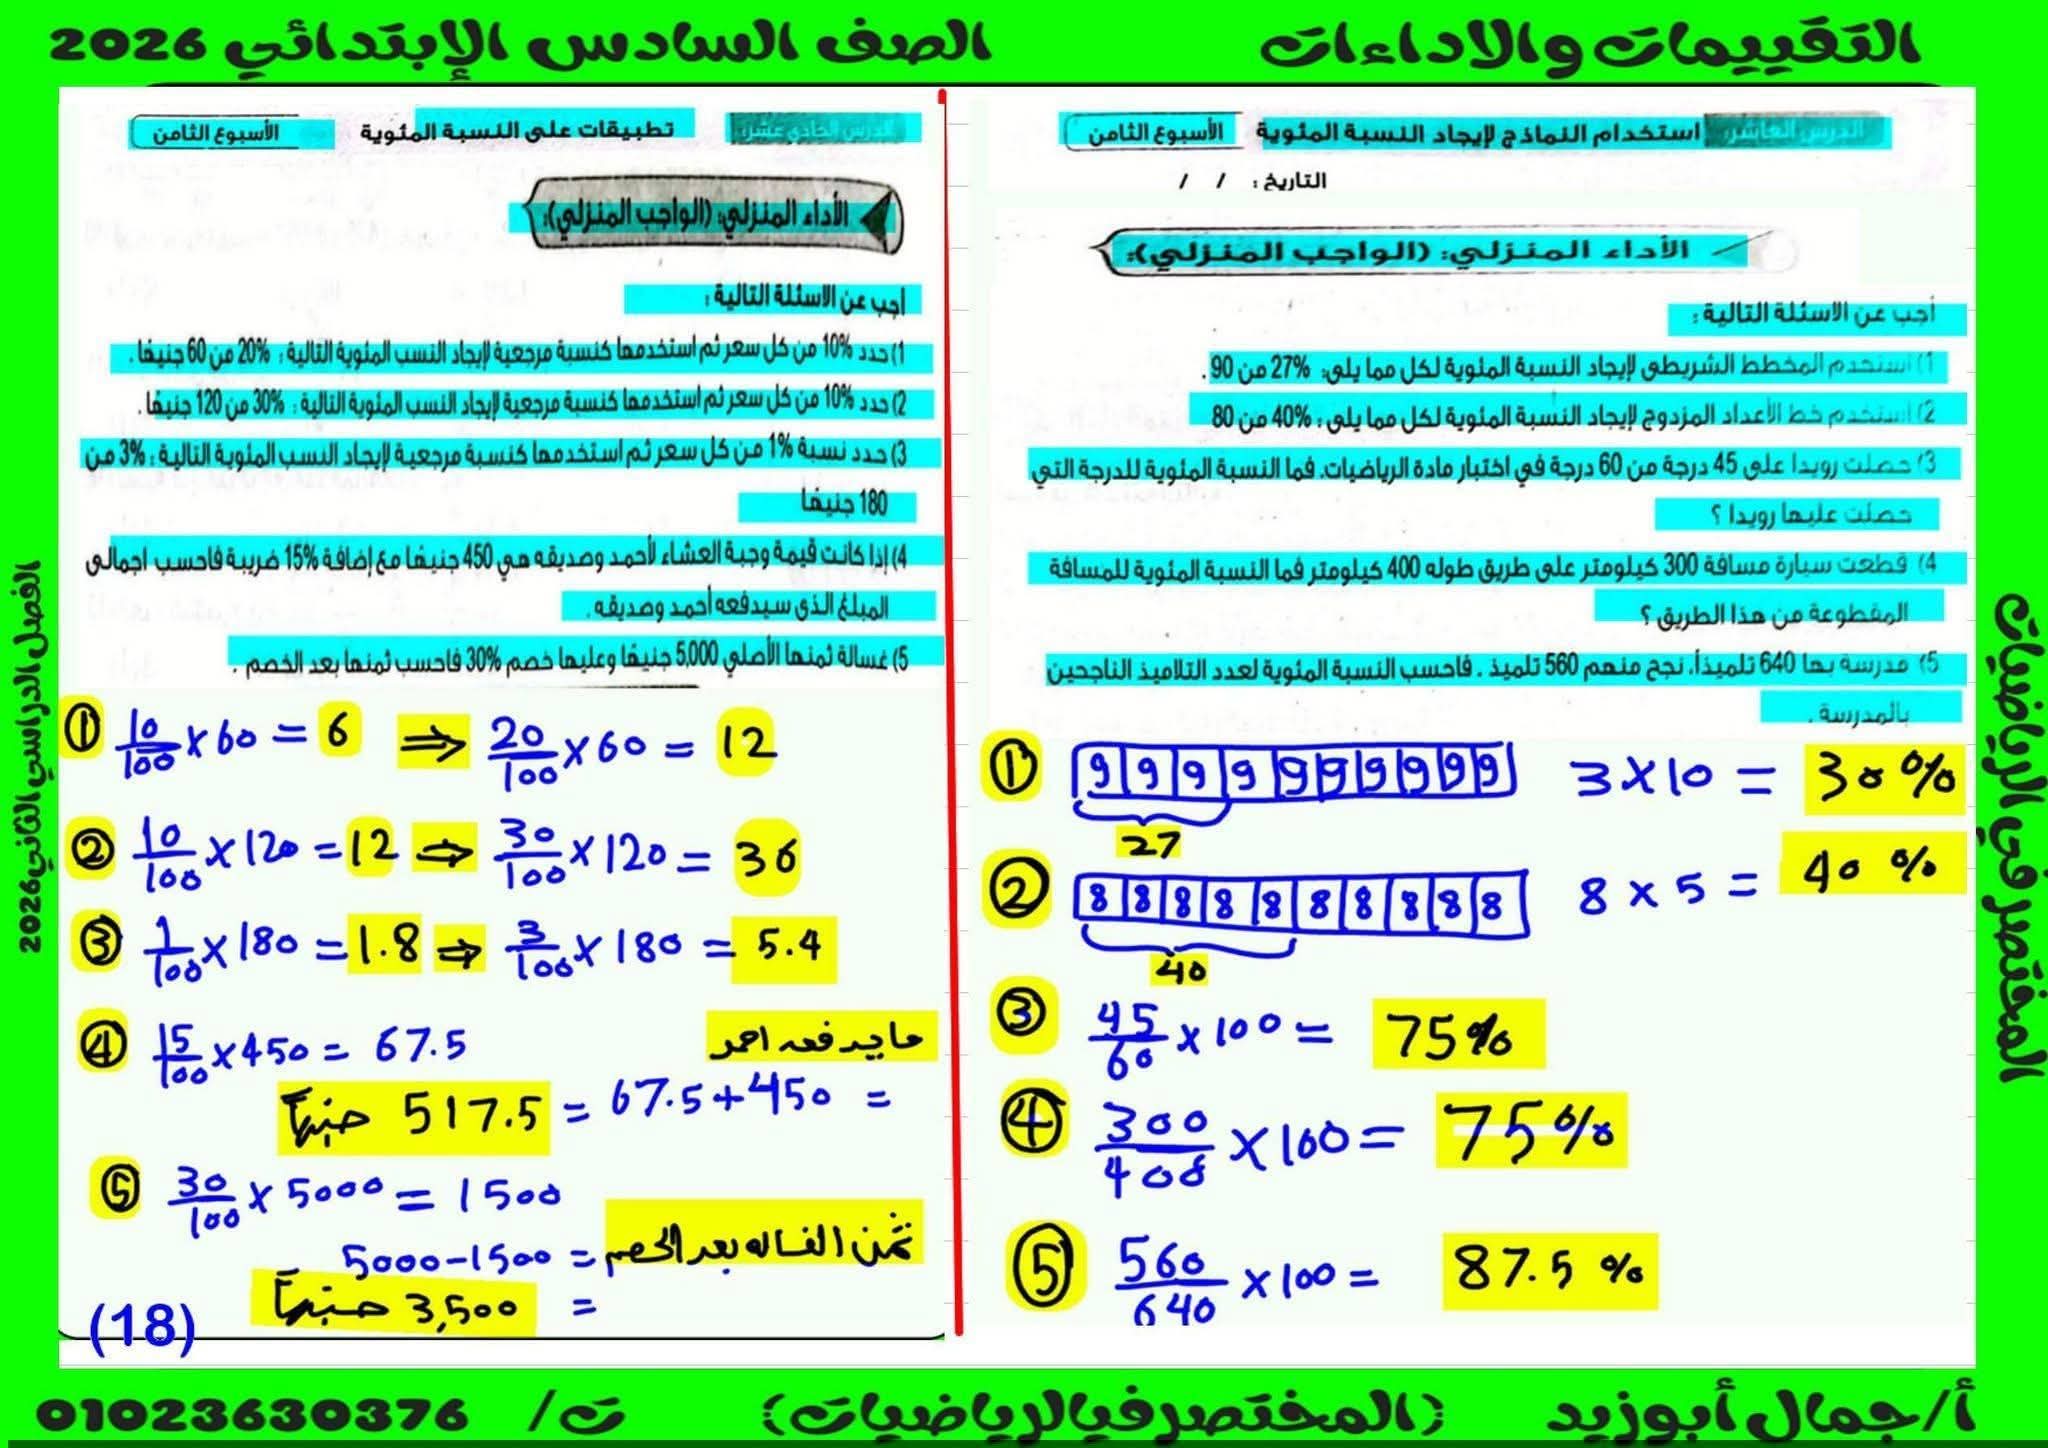 التقييمات والاداءات
الصف السادس الإبتدائي 2026
الدرس العاشر استخدام النماذج لإيجاد النسبة المئوية الأسبوع الثامن
التاريخ : / /
الأداء المنزلي: (الواجب المنزلي):
أجب عن الاسئلة التالية :
1) استخدم المخطط الشريطى لإيجاد النسبة المئوية لكل مما يلي: 27% من 90 .
2) استخدم خط الأعداد المزدوج لإيجاد النسبة المئوية لكل مما يلي : 40% من 80
3) حصلت رويدا على 45 درجة من 60 درجة في اختبار مادة الرياضيات. فما النسبة المئوية للدرجة التي
حصلت عليها رويدا ؟
4) قطعت سيارة مسافة 300 كيلومتر على طريق طوله 400 كيلومتر فما النسبة المئوية للمسافة
المقطوعة من هذا الطريق ؟
5) مدرسة بها 640 تلميذاً، نجح منهم 560 تلميذ . فاحسب النسبة المئوية لعدد التلاميذ الناجحين
بالمدرسة .
① 9 9 9 9 9 9 9 9 9 9 3 × 10 = 30%
27
② 8 8 8 8 8 8 8 8 8 8 8 × 5 = 40 %
40
③ 45/60 × 100 = 75%
④ 300/400 × 100 = 75%
⑤ 560/640 × 100 = 87.5 %
الدرس الحادي عشر تطبيقات على النسبة المئوية الأسبوع الثامن
الأداء المنزلي: (الواجب المنزلي):
أجب عن الاسئلة التالية :
1) حدد 10% من كل سعر ثم استخدمها كنسبة مرجعية لإيجاد النسب المئوية التالية : 20% من 60 جنيهًا .
2) حدد 10% من كل سعر ثم استخدمها كنسبة مرجعية لإيجاد النسب المئوية التالية : 30% من 120 جنيهًا .
3) حدد نسبة 1% من كل سعر ثم استخدمها كنسبة مرجعية لإيجاد النسب المئوية التالية : 3% من
180 جنيهًا
4) إذا كانت قيمة وجبة العشاء لأحمد وصديقه هي 450 جنيهًا مع إضافة 15% ضريبة فاحسب اجمالى
المبلغ الذى سيدفعه أحمد وصديقه .
5) غسالة ثمنها الأصلي 5,000 جنيهًا وعليها خصم 30% فاحسب ثمنها بعد الخصم .
① 10/100 × 60 = 6 ⇒ 20/100 × 60 = 12
② 10/100 × 120 = 12 ⇒ 30/100 × 120 = 36
③ 1/100 × 180 = 1.8 ⇒ 3/100 × 180 = 5.4
④ 15/100 × 450 = 67.5
مايدفعه احمد
= 67.5 + 450 = 517.5 جنيهاً
⑤ 30/100 × 5000 = 1500
ثمن الغساله بعد الخصم = 5000 - 1500
= 3,500 جنيهاً
(18)
الفصل الدراسي الثاني 2026
المختصر في الرياضيات
أ/جمال أبوزيد {المختصرفيالرياضيات} ت/ 01023630376